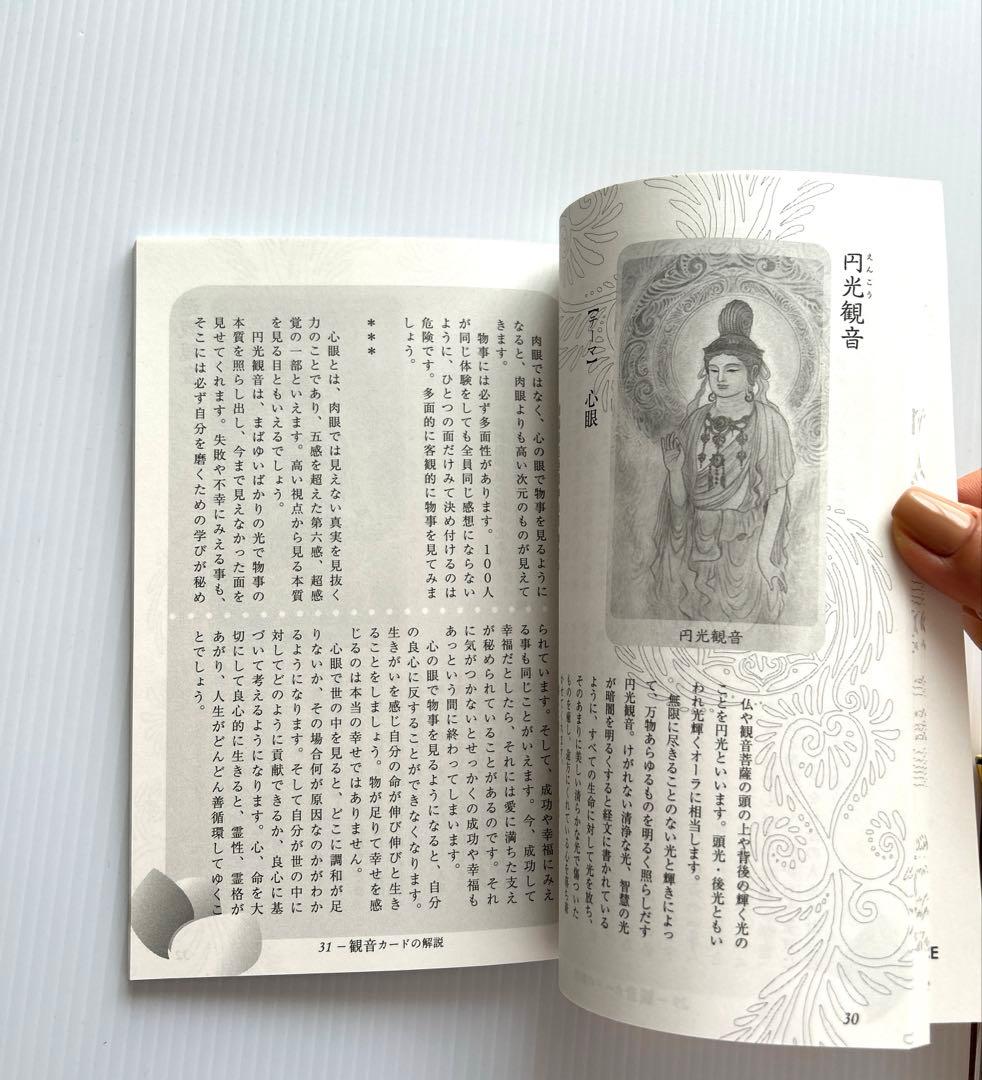 円光観音
えんこう
【テーマ】 心眼
円光観音
仏や観音菩薩の頭の上や背後の輝く光の
ことを円光といいます。頭光・後光ともい
われ光輝くオーラに相当します。
無限に尽きることのない光と輝きによっ
て、万物あらゆるものを明るく照らしだす
円光観音。けがれない清浄な光、智慧の光
が暗闇を明るくすると経文に書かれている
ように、すべての生命に対して光を放ち、
そのあまりに美しい清らかな光で傷ついた
ものを癒し、途方にくれている心を
30
肉眼ではなく、心の眼で物事を見るように
なると、肉眼よりも高い次元のものが見えて
きます。
物事には必ず多面性があります。100人
が同じ体験をしても全員同じ感想にならない
ように、ひとつの面だけみて決め付けるのは
危険です。多面的に客観的に物事を見てみま
しょう。
***
心眼とは、肉眼では見えない真実を見抜く
力のことであり、五感を超えた第六感、超感
覚の一部といえます。高い視点から見る本質
を見る目ともいえるでしょう。
円光観音は、まばゆいばかりの光で物事の
本質を照らし出し、今まで見えなかった面を
見せてくれます。失敗や不幸にみえる事も、
そこには必ず自分を磨くための学びが秘め
られています。そして、成功や幸福にみえ
る事も同じことがいえます。今、成功して
幸福だとしたら、それには愛に満ちた支え
が秘められていることがあるのです。それ
に気がつかないとせっかくの成功や幸福も
あっという間に終わってしまいます。
心の眼で物事を見るようになると、自分
の良心に反することができなくなります。
生きがいを感じ自分の命が伸び伸びと生き
ることをしましょう。物が足りて幸せを感
じるのは本当の幸せではありません。
心眼で世の中を見ると、どこに調和が足
りないか、その場合何が原因なのかがわか
るようになります。そして自分が世の中に
対してどのように貢献できるか、良心に基
づいて考えるようになります。心、命を大
切にして良心的に生きると、霊性、霊格が
あがり、人生がどんどん善循環してゆくこ
とでしょう。
31 − 観音カードの解説